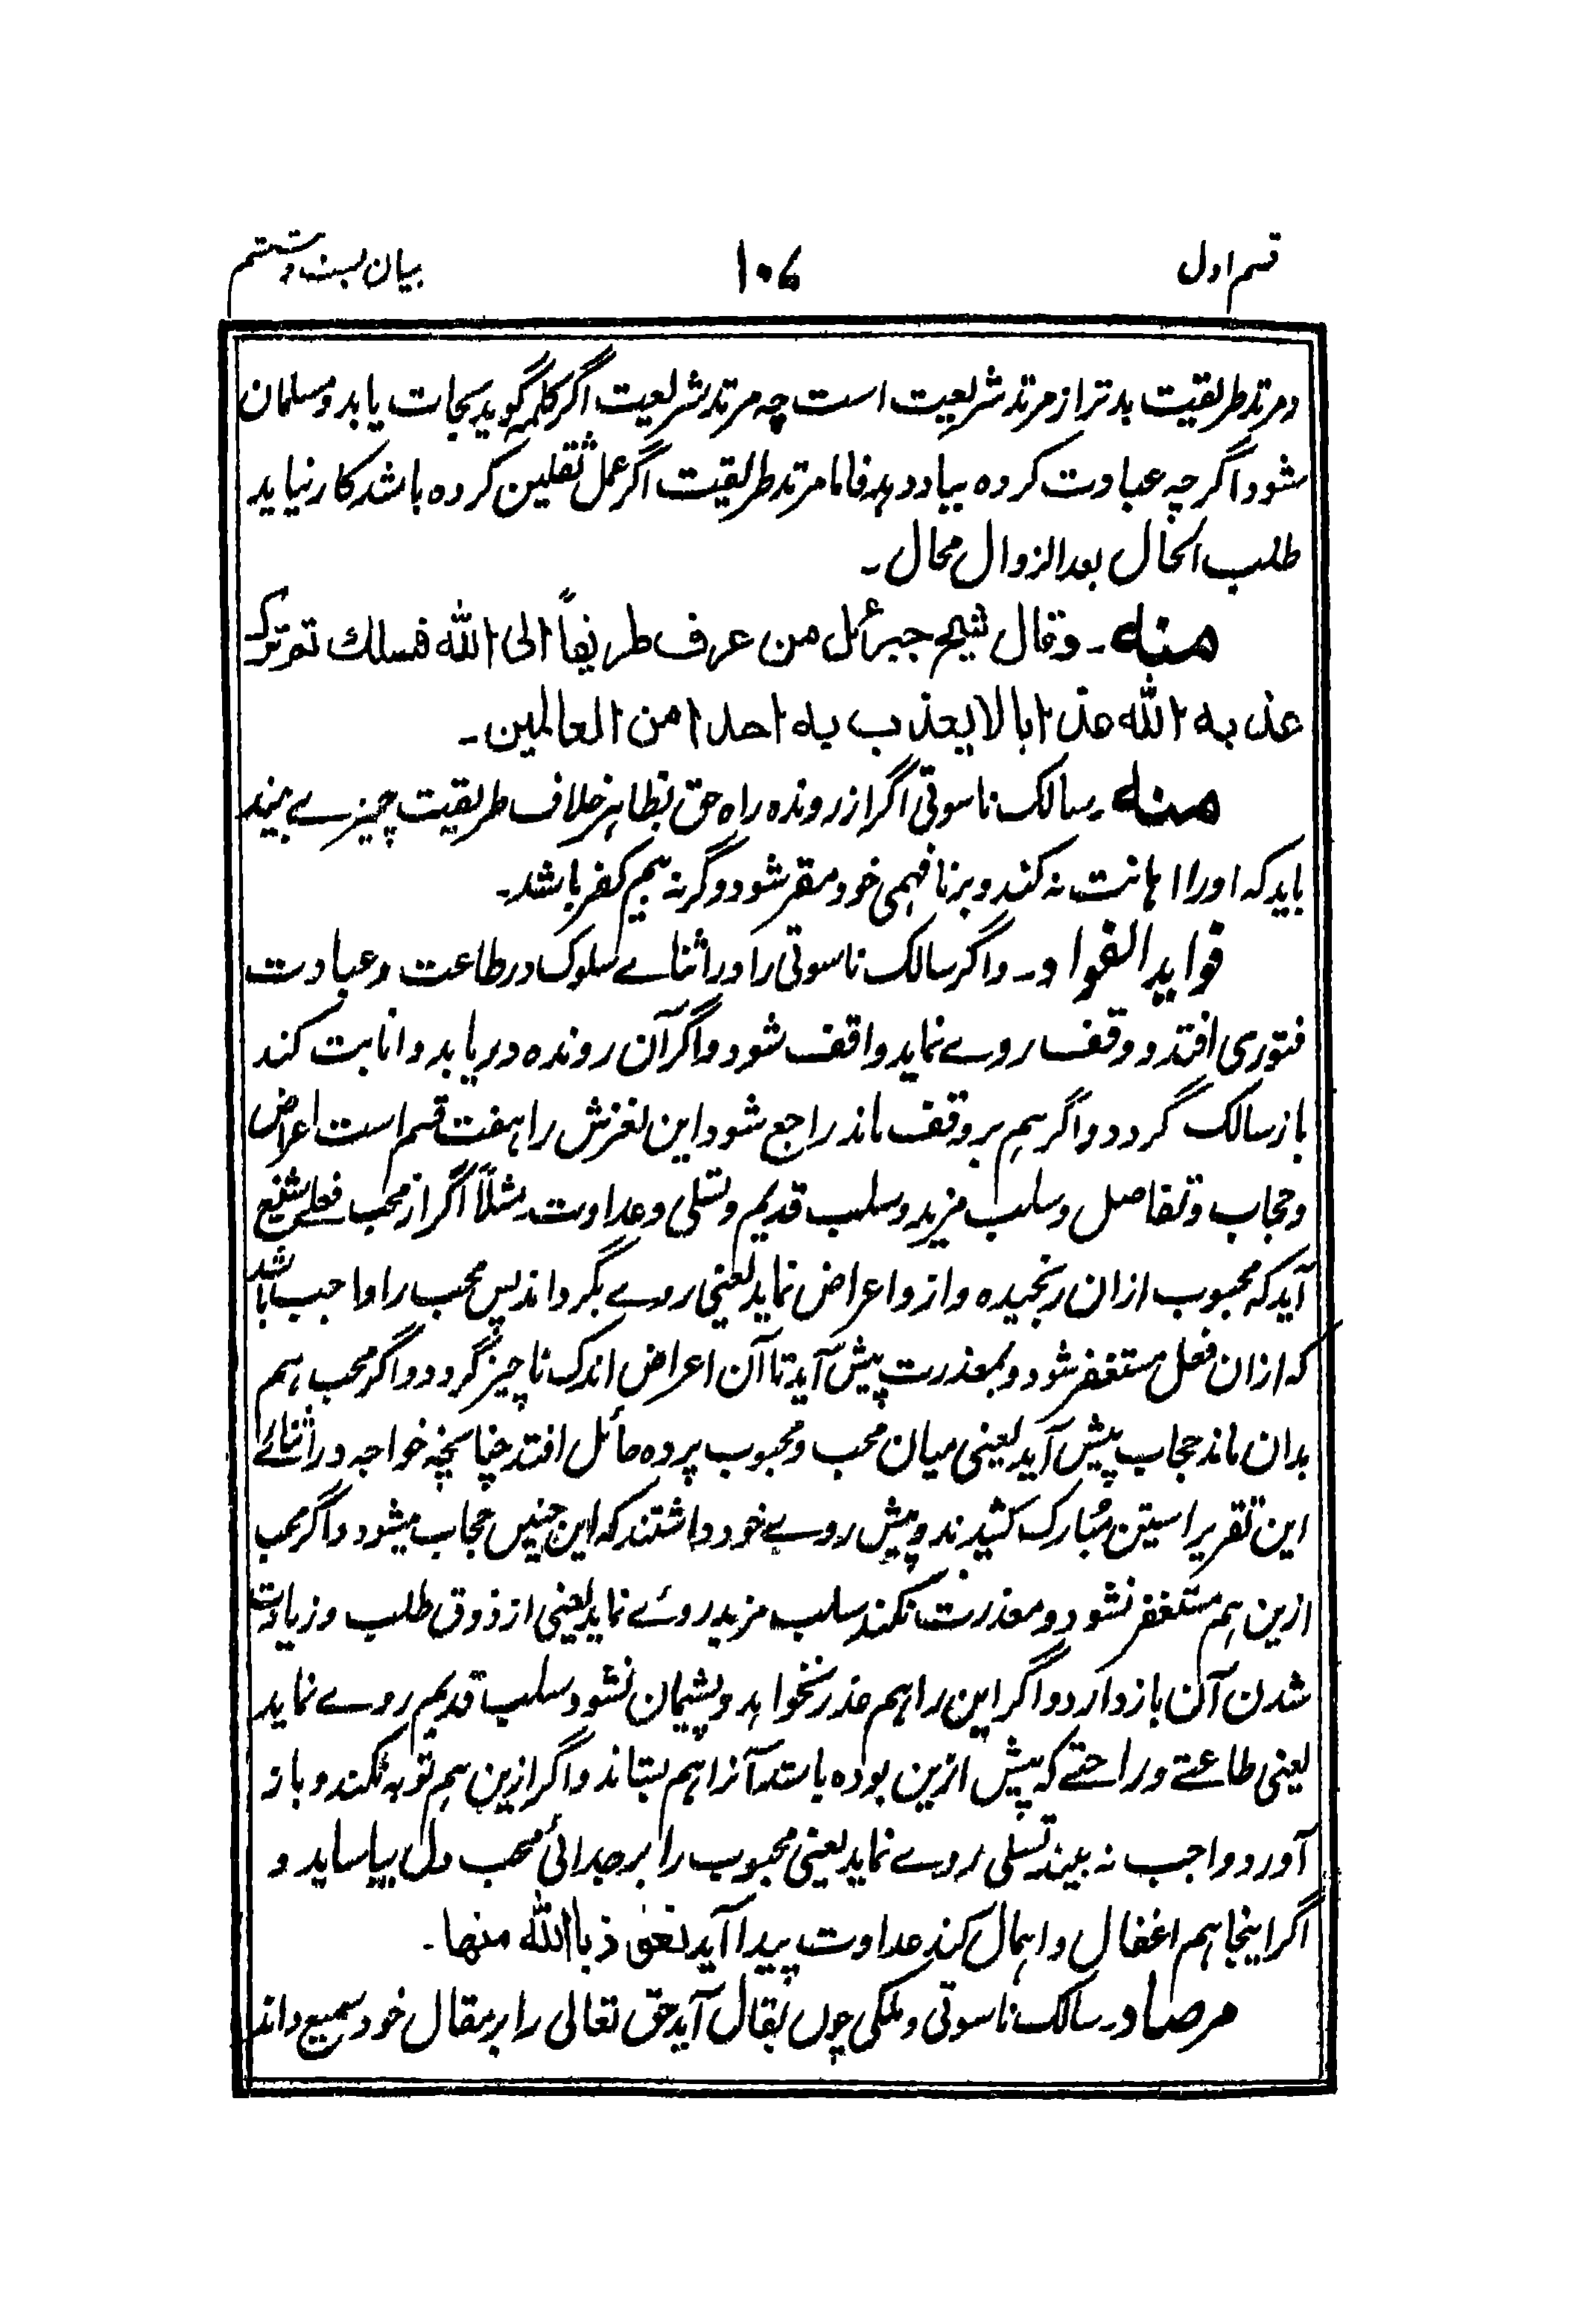 قسم اول ۱۰۶ بیان بست و ششم
و مرتد طریقیت بدتر از مرتد شریعیت است چه مرتد شریعیت اگر کلمه گوید نجات یابد و مسلمان
شود اگر چه عبادت کرده بباد دهد فاما مرتد طریقیت اگر عمل ثقلین کرده باشد کار نیاید
طلب الحال بعد الزوال محال ۔
منه ۔ وقال شیخ جبرائل من عرف طریقاً الی الله فسلك ثم ترك
عذبه الله عذابا لا یعذب به احدا من العالمین ۔
منه ۔ سالک ناسوتی اگر از رونده راه حق بظاہر خلاف طریقیت چیزے بیند
باید که اورا اهانت نه کند و بر نافهمی خود مقر شود و گر نه بیم کفر باشد ۔
فواید الفواد ۔ و اگر سالک ناسوتی را در اثناے سلوک در طاعت و عبادت
فتوری افتد و وقفه روے نماید واقف شود و اگر آن رونده دریابد و انابت کند
باز سالک گردد و اگر ہم بر وقفه ماند راجع شود این لغزش را ہفت قسم است اعراض
و حجاب و تفاصل و سلب مزید و سلب قدیم و تسلی و عداوت مثلاً اگر از محب فعلے شنیع
آید که محبوب ازان رنجیده و ازو اعراض نماید یعنی روے بگرداند پس محب را واجب باشد
که ازان فعل مستغفر شود و بمعذرت پیش آید تا آن اعراض اندک ناچیز گردد و اگر محب ہم
بدان ماند حجاب پیش آید یعنی میان محب و محبوب پرده حائل افتد چنانچه خواجه در اثنائے
این تقریر استین مُبارک کشیدند و پیش روے خود داشتند که این چنیں حجاب میشود و اگر محب
ازین ہم مستغفر نشود و معذرت نکند سلب مزید روئے نماید یعنی از ذوق طلب و زیادت
شدن آن باز دارد و اگر این را ہم عذر نخواہد و پشیمان نشود سلب قدیم روے نماید
یعنی طاعتے و راحتے که پیش ازین بوده باشد آنرا ہم بستاند و اگر ازین ہم توبه نکند و باز
آورد واجب نه بیند تسلی روے نماید یعنی محبوب را بر جدائی محب دل بیاساید و
اگر اینجا ہم اغفال و اہمال کند عداوت پیدا آید نعوذ باالله منها ۔
مرصاد ۔ سالک ناسوتی و ملکی چوں بقال آید حق تعالی را بر مقال خود سمیع داند